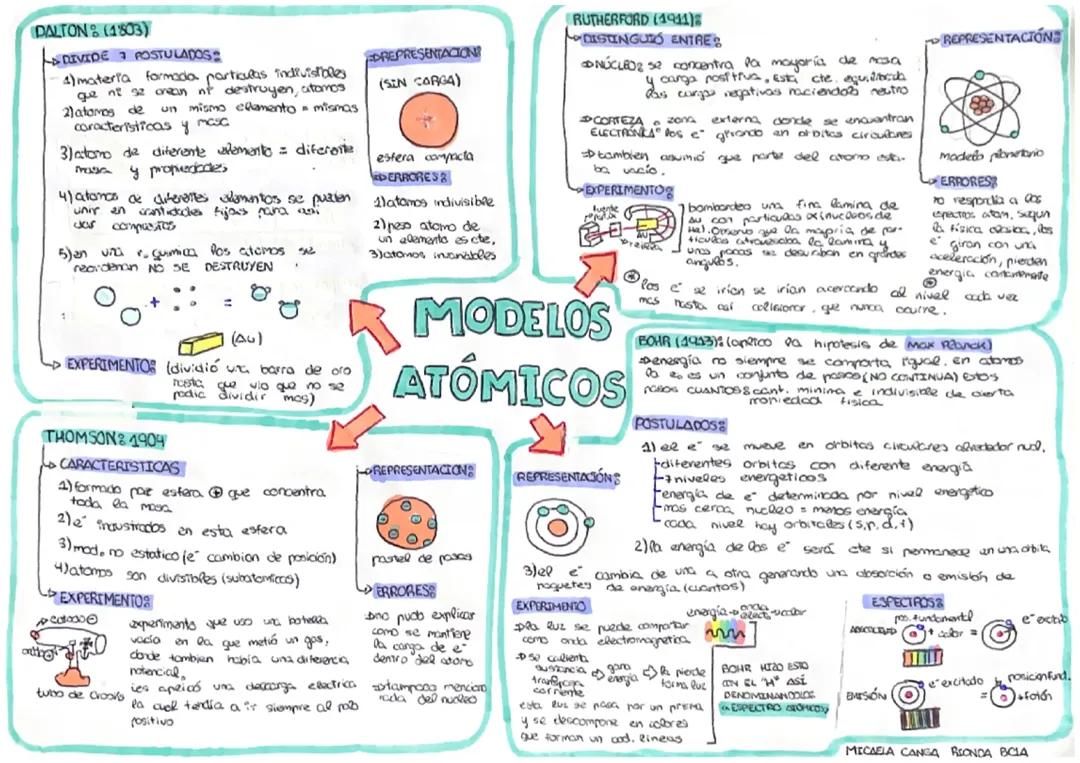 DALTON: (1803)
DIVIDE 7 POSTULADOS:
1) materia formada partículas indivisibles
que ni se crean ni destruyen, atomos
2) atomos de un mismo elemento = mismas
características y masa
3) atomo de diferente elemento = diferente
masa y propiedades
4) atomos de diferentes elementos se pueden
unir en cantidades fijas para así
dar compuestos
5) en una r. química los atomos se
reordenan NO SE DESTRUYEN
+ =
(Au)
EXPERIMENTO: (dividió una barra de oro
hasta que vio que no se
podia dividir mas)
REPRESENTACION:
(SIN CARGA)
esfera compacta
ERRORES:
1) atomos indivisible
2) peso atomo de
un elemento es cte,
3) atomos inmutables
RUTHERFORD (1911):
DISTINGUIÓ ENTRE:
NÚCLEO: se concentra la mayoría de masa
y carga positiva. Esta cte. equilibrada
las cargas negativas haciendolo neutro
CORTEZA ELECTRÓNICA: zona externa donde se encuentran
los e⁻ girando en orbitas circulares
tambien asumió que parte del atomo esta-
ba vacío.
EXPERIMENTO:
fuente
Au
bombardeo una fina lamina de
Au con particulas α (nucleos de
He). Observo que la mayoria de par-
ticulas atravesaba la lamina y
unas pocas se desviaban en grandes
angulos.
los e⁻ se irían se irían acercando al nivel cada vez
mas hasta asi colisionar, que nunca ocurre.
REPRESENTACIÓN:
modelo planetario
ERRORES:
no respondia a los
espectros atom, según
la física clasica, los
e⁻ giran con una
aceleración, pierden
energia constantemente
MODELOS
ATÓMICOS
THOMSON: 1904
CARACTERISTICAS
1) formado por esfera ⊕ que concentra
toda la masa
2) e⁻ incrustrados en esta esfera
3) mod. no estatico (e⁻ cambian de posición)
4) atomos son divisibles (subatomicas)
EXPERIMENTO:
catodo ⊖
tubo de Crooks
experimento que uso una botella
vacía en la que metió un gas,
donde tambien habia una diferencia
potencial,
les aplicó una descarga electrica
la cual tendía a ir siempre al polo
positivo
REPRESENTACION:
pastel de pasas
ERRORES:
no pudo explicar
como se mantiene
la carga de e⁻
dentro del atomo
tampoco menciono
nada del nucleo
BOHR (1913): (aplico la hipotesis de Max Planck)
energía no siempre se comporta igual. en atomos
la e. es un conjunto de pasos (NO CONTINUA) Estos
pasos CUANTOS: cant. minima e indivisible de cierta
propiedad fisica
POSTULADOS:
1) el e⁻ se mueve en orbitas circulares alrededor nucl.
diferentes orbitas con diferente energía
7 niveles energeticos
energía de e⁻ determinada por nivel energetico
mas cerca nucleo = menos energía
cada nivel hay orbitales (s, p, d, f)
2) la energía de los e⁻ será cte si permanece en una orbita
3) el e⁻ cambia de una a otra generando una absorción o emisión de
paquetes de energía (cuantos)
REPRESENTACIÓN:
EXPERIMENTO
la luz se puede comportar
como onda electromagnetica
se calienta
sustancia
corriente
gana
energía
la pierde
forma luz
esta luz se pasa por un prisma
y se descompone en colores
que forman un cod. lineas
BOHR HIZO ESTO
CON EL "H" ASÍ
DENOMINANDOLOS
ESPECTRO ATOMICO
ESPECTROS:
pos. fundamental
+ calor =
e⁻ excitado
EMISIÓN
e⁻ excitado
=
posicion fund.
+ fotón
MICAELA CANGA RIONDA BC1A